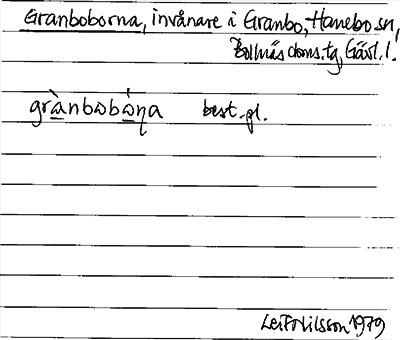 Granboborna, invånare i Granbo, Hanebo sn,
Bollnäs doms.tg, Gävl. l.
grànbobȯṇa best. pl.
Leif Nilsson 1979